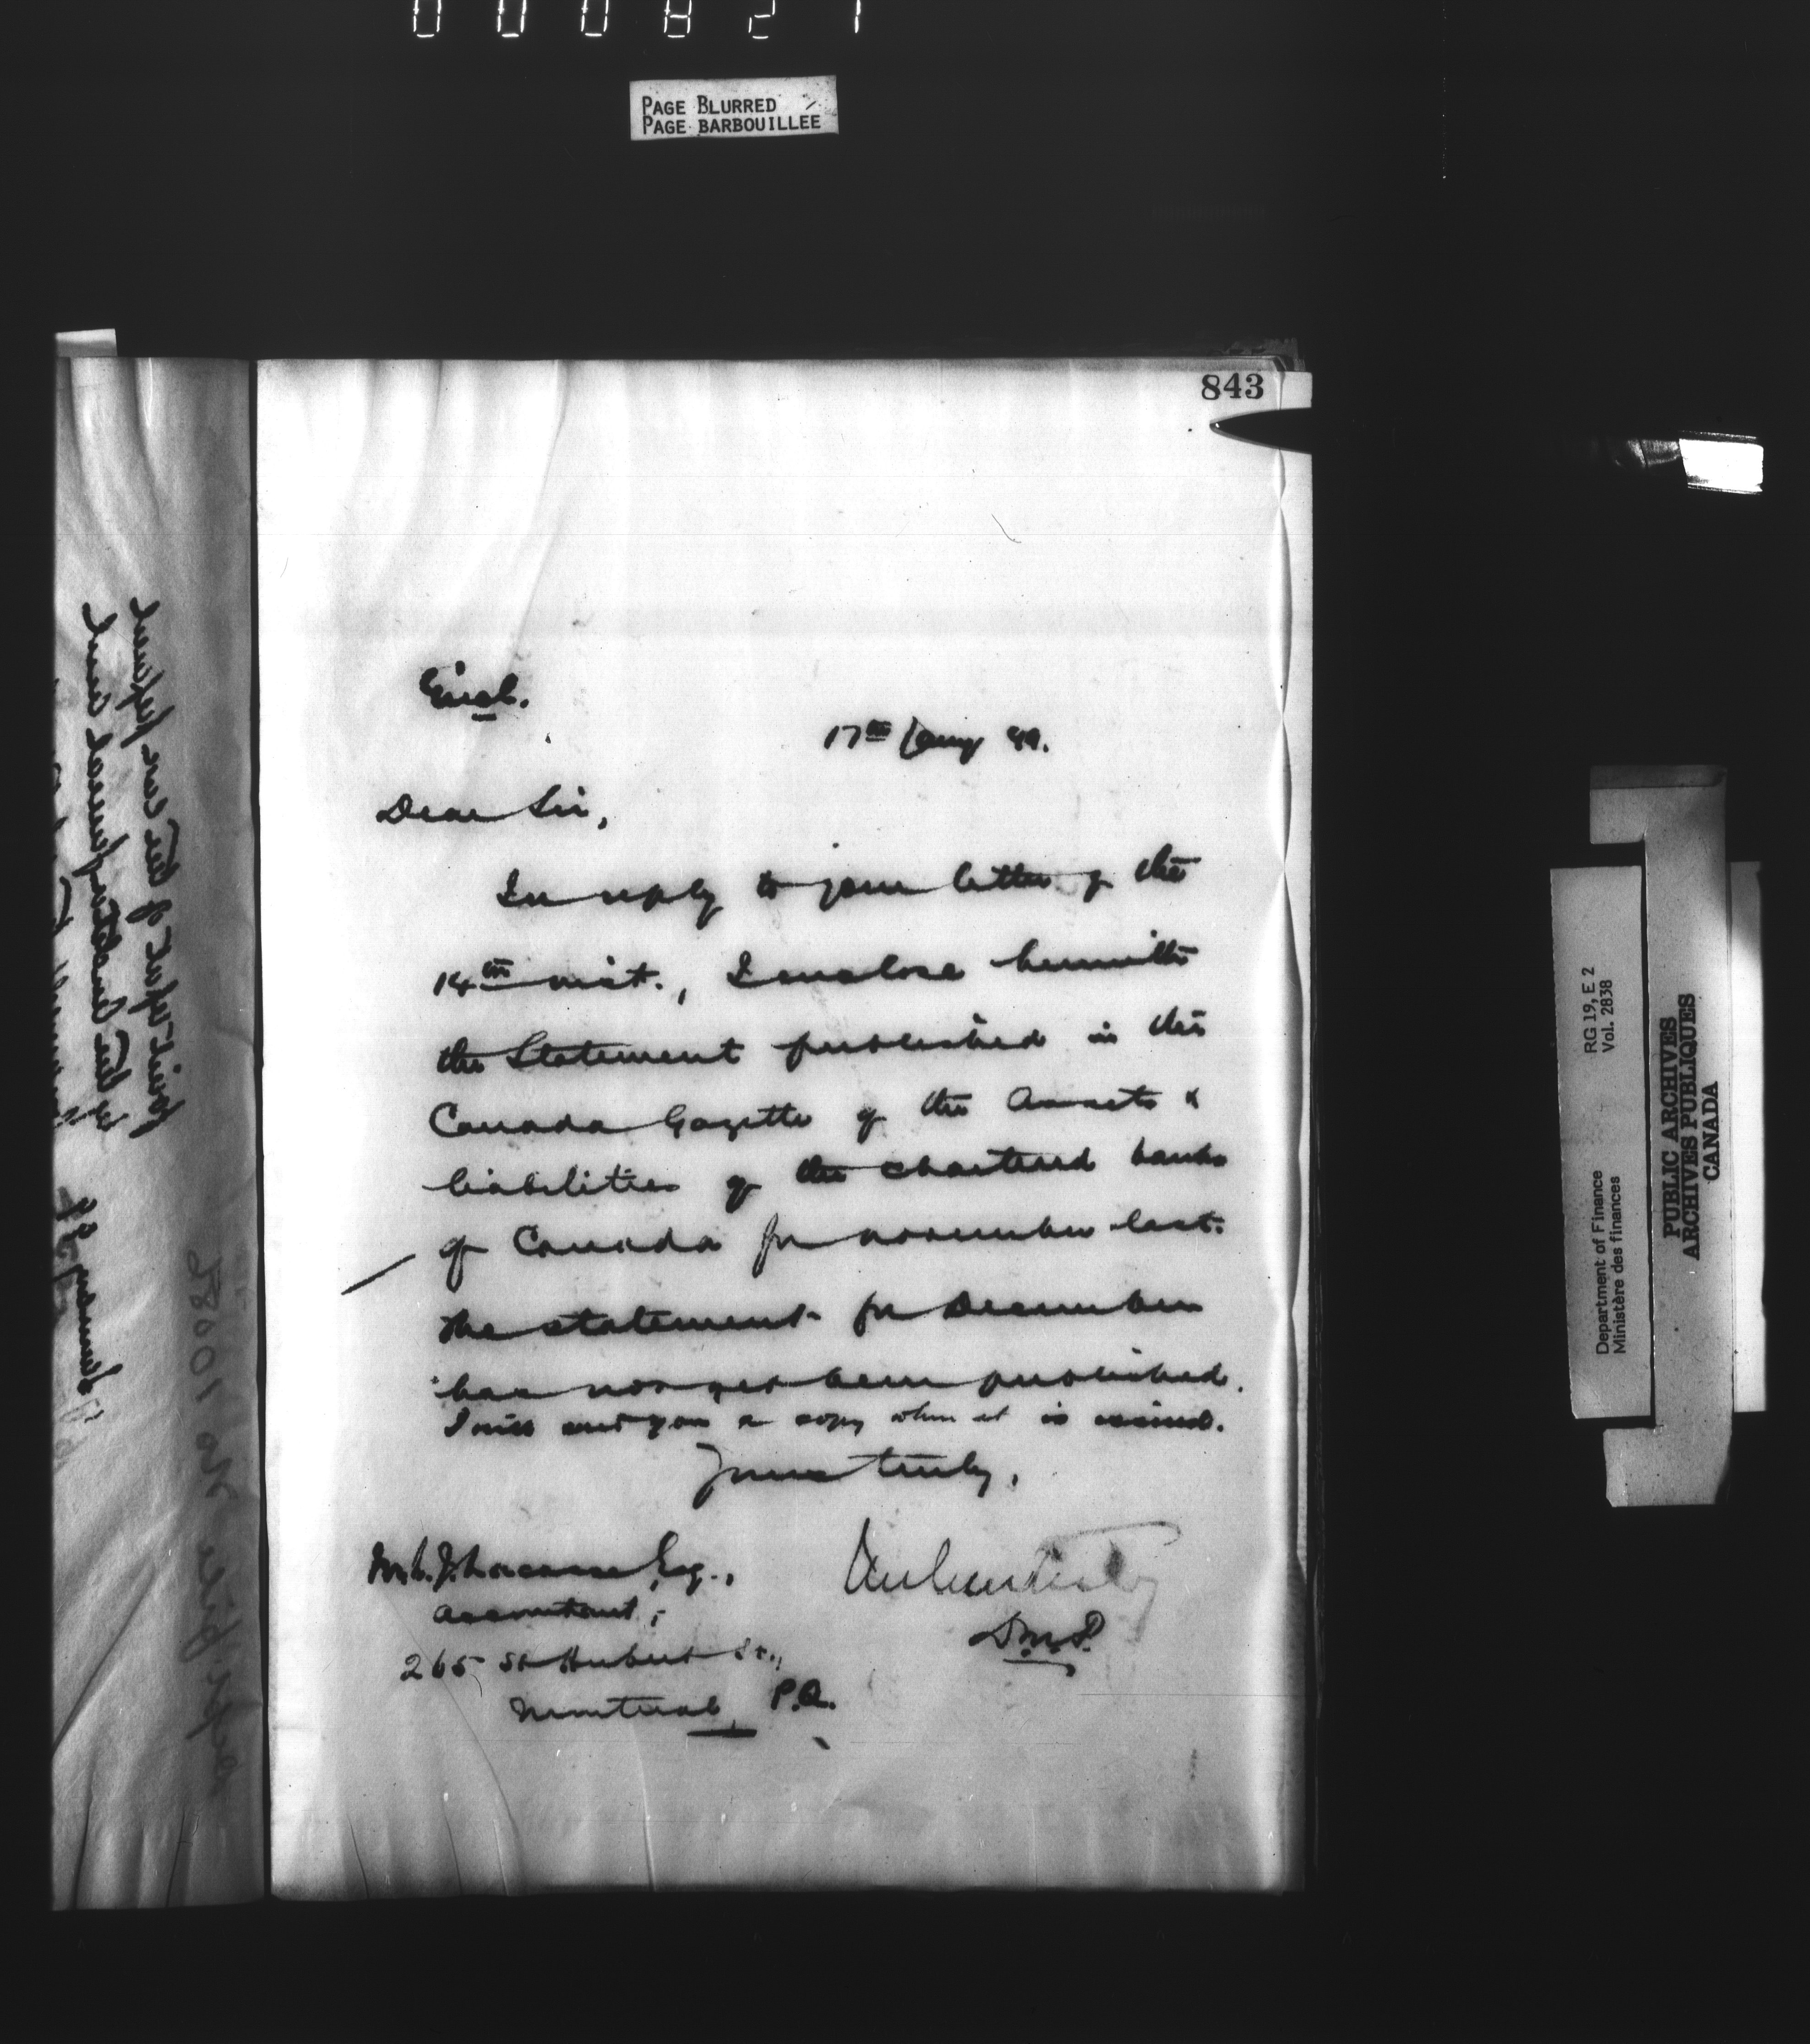 000821
PAGE BLURRED
PAGE BARBOUILLEE
843
Encl.
17th Jany 99.
Dear Sir,
In reply to your letter of the
14th inst., I enclose herewith
the Statement published in the
Canada Gazette of the Assets &
liabilities of the chartered banks
of Canada for November last.
The statement for December
has not yet been published.
I will send you a copy when it is issued.
Yours truly,
Lacasse, Esq.,
Accountant,
265 St Hubert St.,
Montreal, P.Q.
D.M.F.
RG 19, E 2
Vol. 2838
Department of Finance
Ministère des finances
PUBLIC ARCHIVES
ARCHIVES PUBLIQUES
CANADA